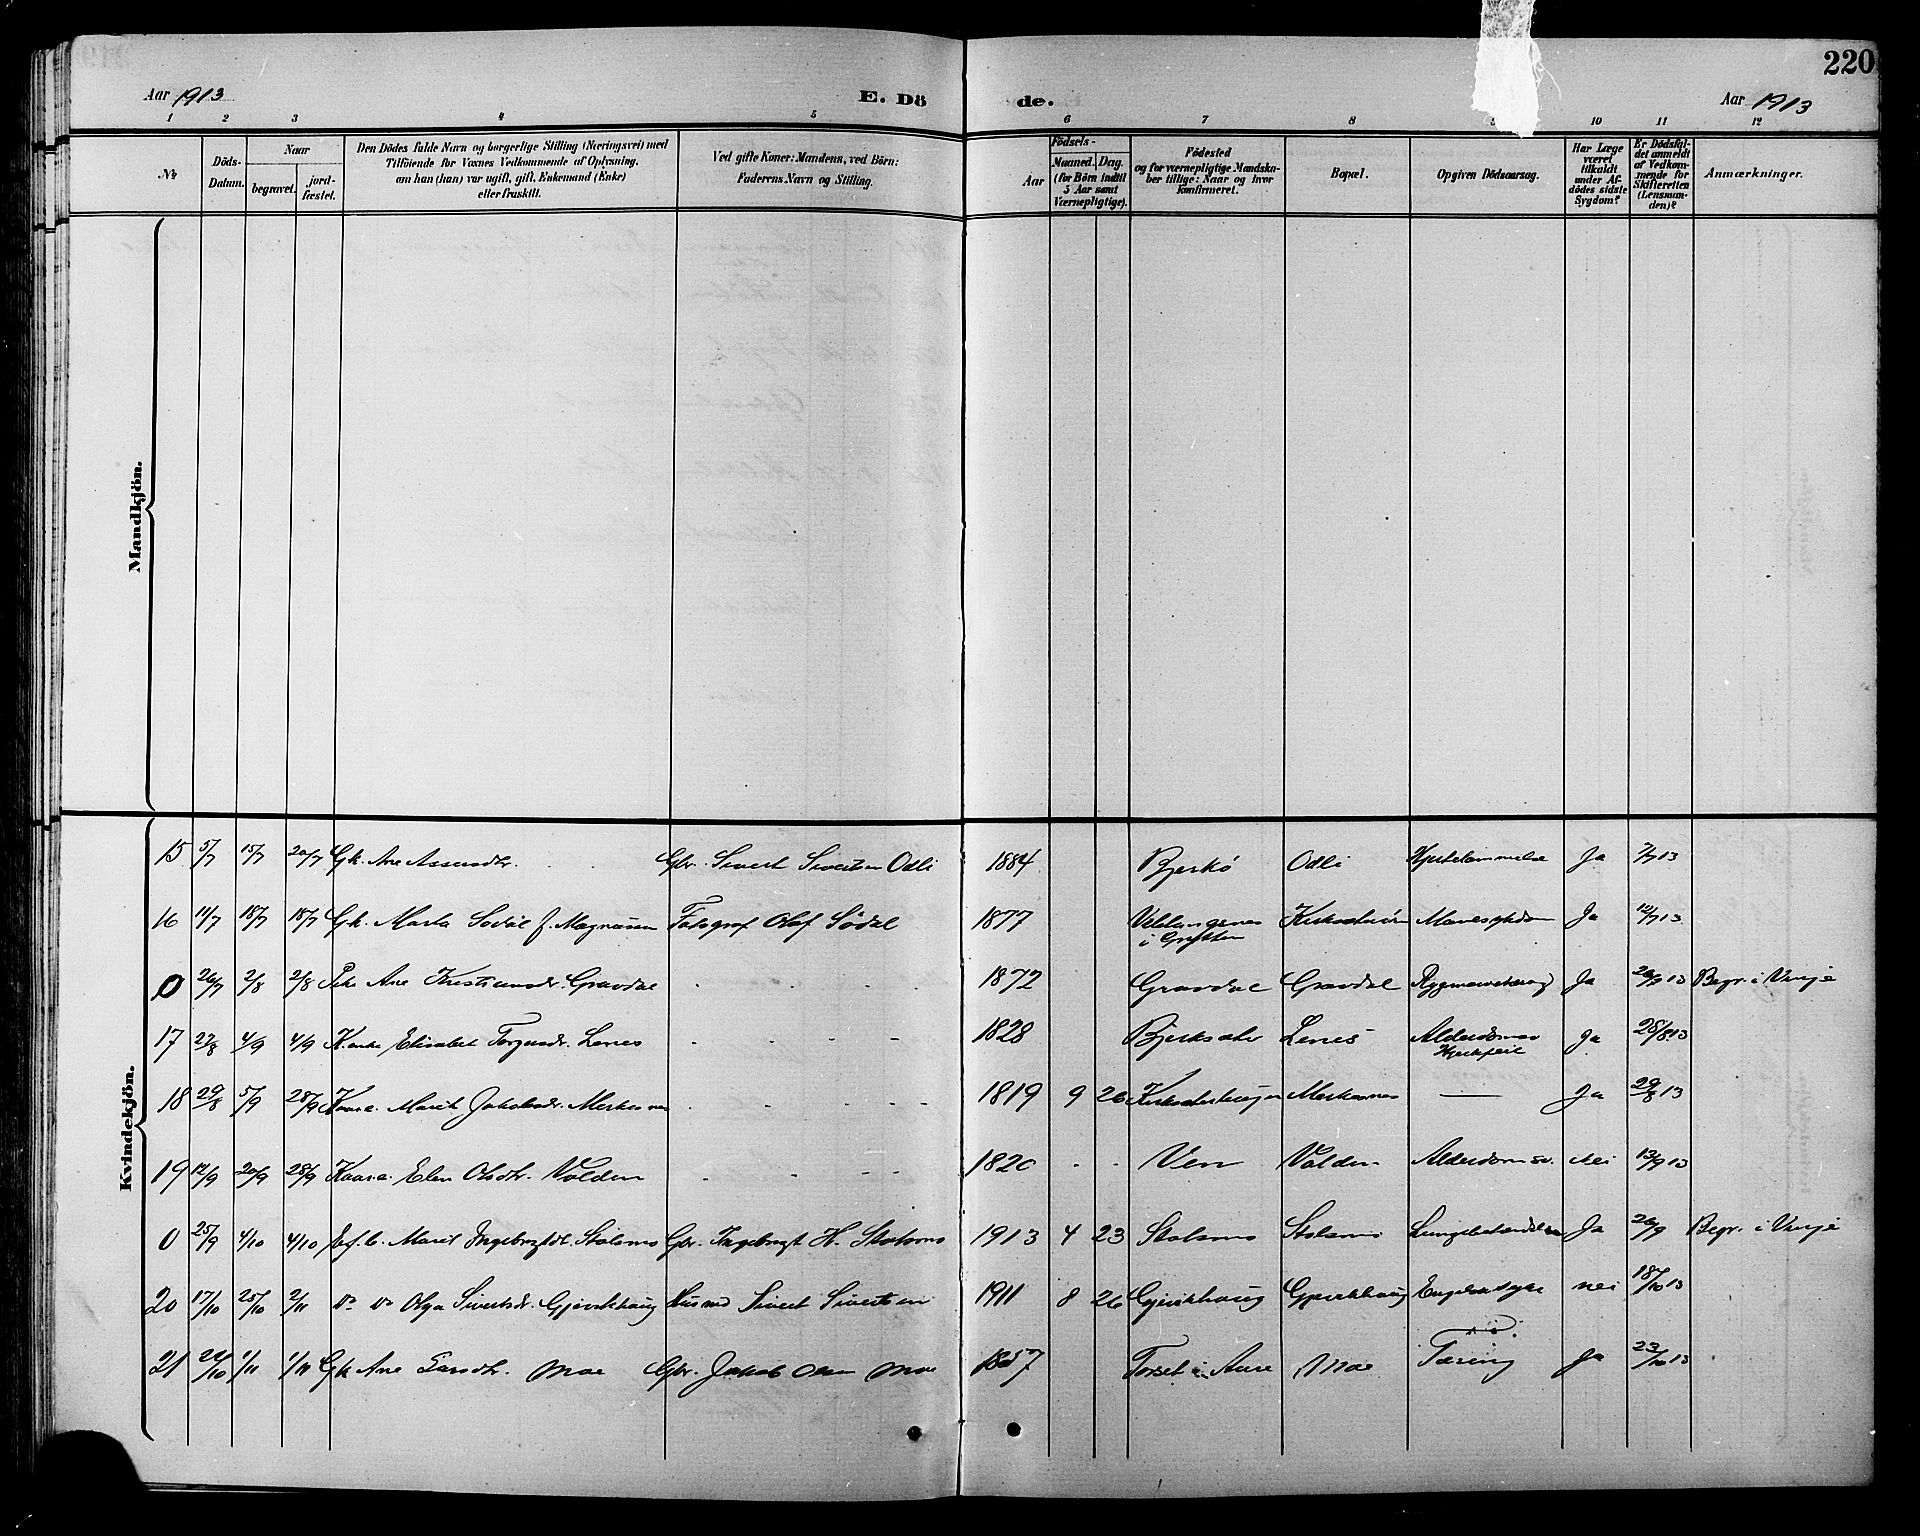 220
Aar 1913
E. Dö
de.
Aar 1913
1 2 3 4 5 6 7 8 9 10 11 12
No
Döds-Datum.
Naar
begravet.
jord-fæstet.
Den Dödes fulde Navn og borgerlige Stilling (Næringsvei) med
Tilföiende for Voxnes Vedkommende af Oplysning,
om han (hun) var ugift, gift, Enkemand (Enke)
eller fraskilt.
Ved gifte Koner: Mandens, ved Börn:
Faderens Navn og Stilling.
Födsels-
Aar
Maaned. Dag.
(for Börn indtil
5 Aar samt
Værnepligtige).
Födested
og for værnepligtige Mandska-
ber tillige: Naar og hvor
konfirmeret.
Bopæl.
Opgiven Dödsaarsag.
Har Læge
været
tilkaldt
under Af-
dödes sidste
Sygdom?
Er Dödsfal-
det anmeldt
af Vedkom-
mende for
Skifteretten
(Lensman-
den)?
Anmærkninger.
Mandkjön.
Kvindekjön.
15 5/7 15/7 20/7 Gk. Ane Assersdtr. Gbr. Sivert Sivertsen Odli 1884 Bjerkö Odli Ja 7/7 13
16 11/7 18/7 18/7 Gk. Marta Sodal f. Magnusen Fotograf Olaf Södal 1877 i Grytten Ja 12/7 13
0 20/7 2/8 2/8 Pike Ane Kristiansdr. Gravdal 1872 Gravdal Gravdal Ja 13 Begr. i Vinje
17 27/8 4/9 4/9 K. enke Elisabet Torgersdr. Lenes 1828 Bjerksæter Lenes Alderdomssv. Ja 28/8 13
18 29/8 5/9 28/9 Kaare. Marit Jakobsdr. 1819 9 26 — Ja 29/8 13
19 12/9 20/9 28/9 Kaare. Elen Olsdtr. Volden 1820 Ven Volden Alderdomssv. nei 13/9 13
0 25/9 4/10 4/10 Marit Ingebrigtdt. Stolsnes Gbr. Ingebrigt H. Stolsnes 1913 4 23 Stolsnes Stolsnes Lungebetændelse Ja 26/9 Begr. i Vinje
20 17/10 25/10 2/11 do do Olga Sivertsdr. Gjevikhaug Husmd Sivert Sivertsen 1911 8 26 Gjevikhaug Gjevikhaug Engelsk syke nei 18/10 13
21 1/11 1/11 Gk Ane Larsdtr. Moe Gbr. Jakob Olsen Moe 1857 Torset i Aure Moe Tæring Ja 23/10 13